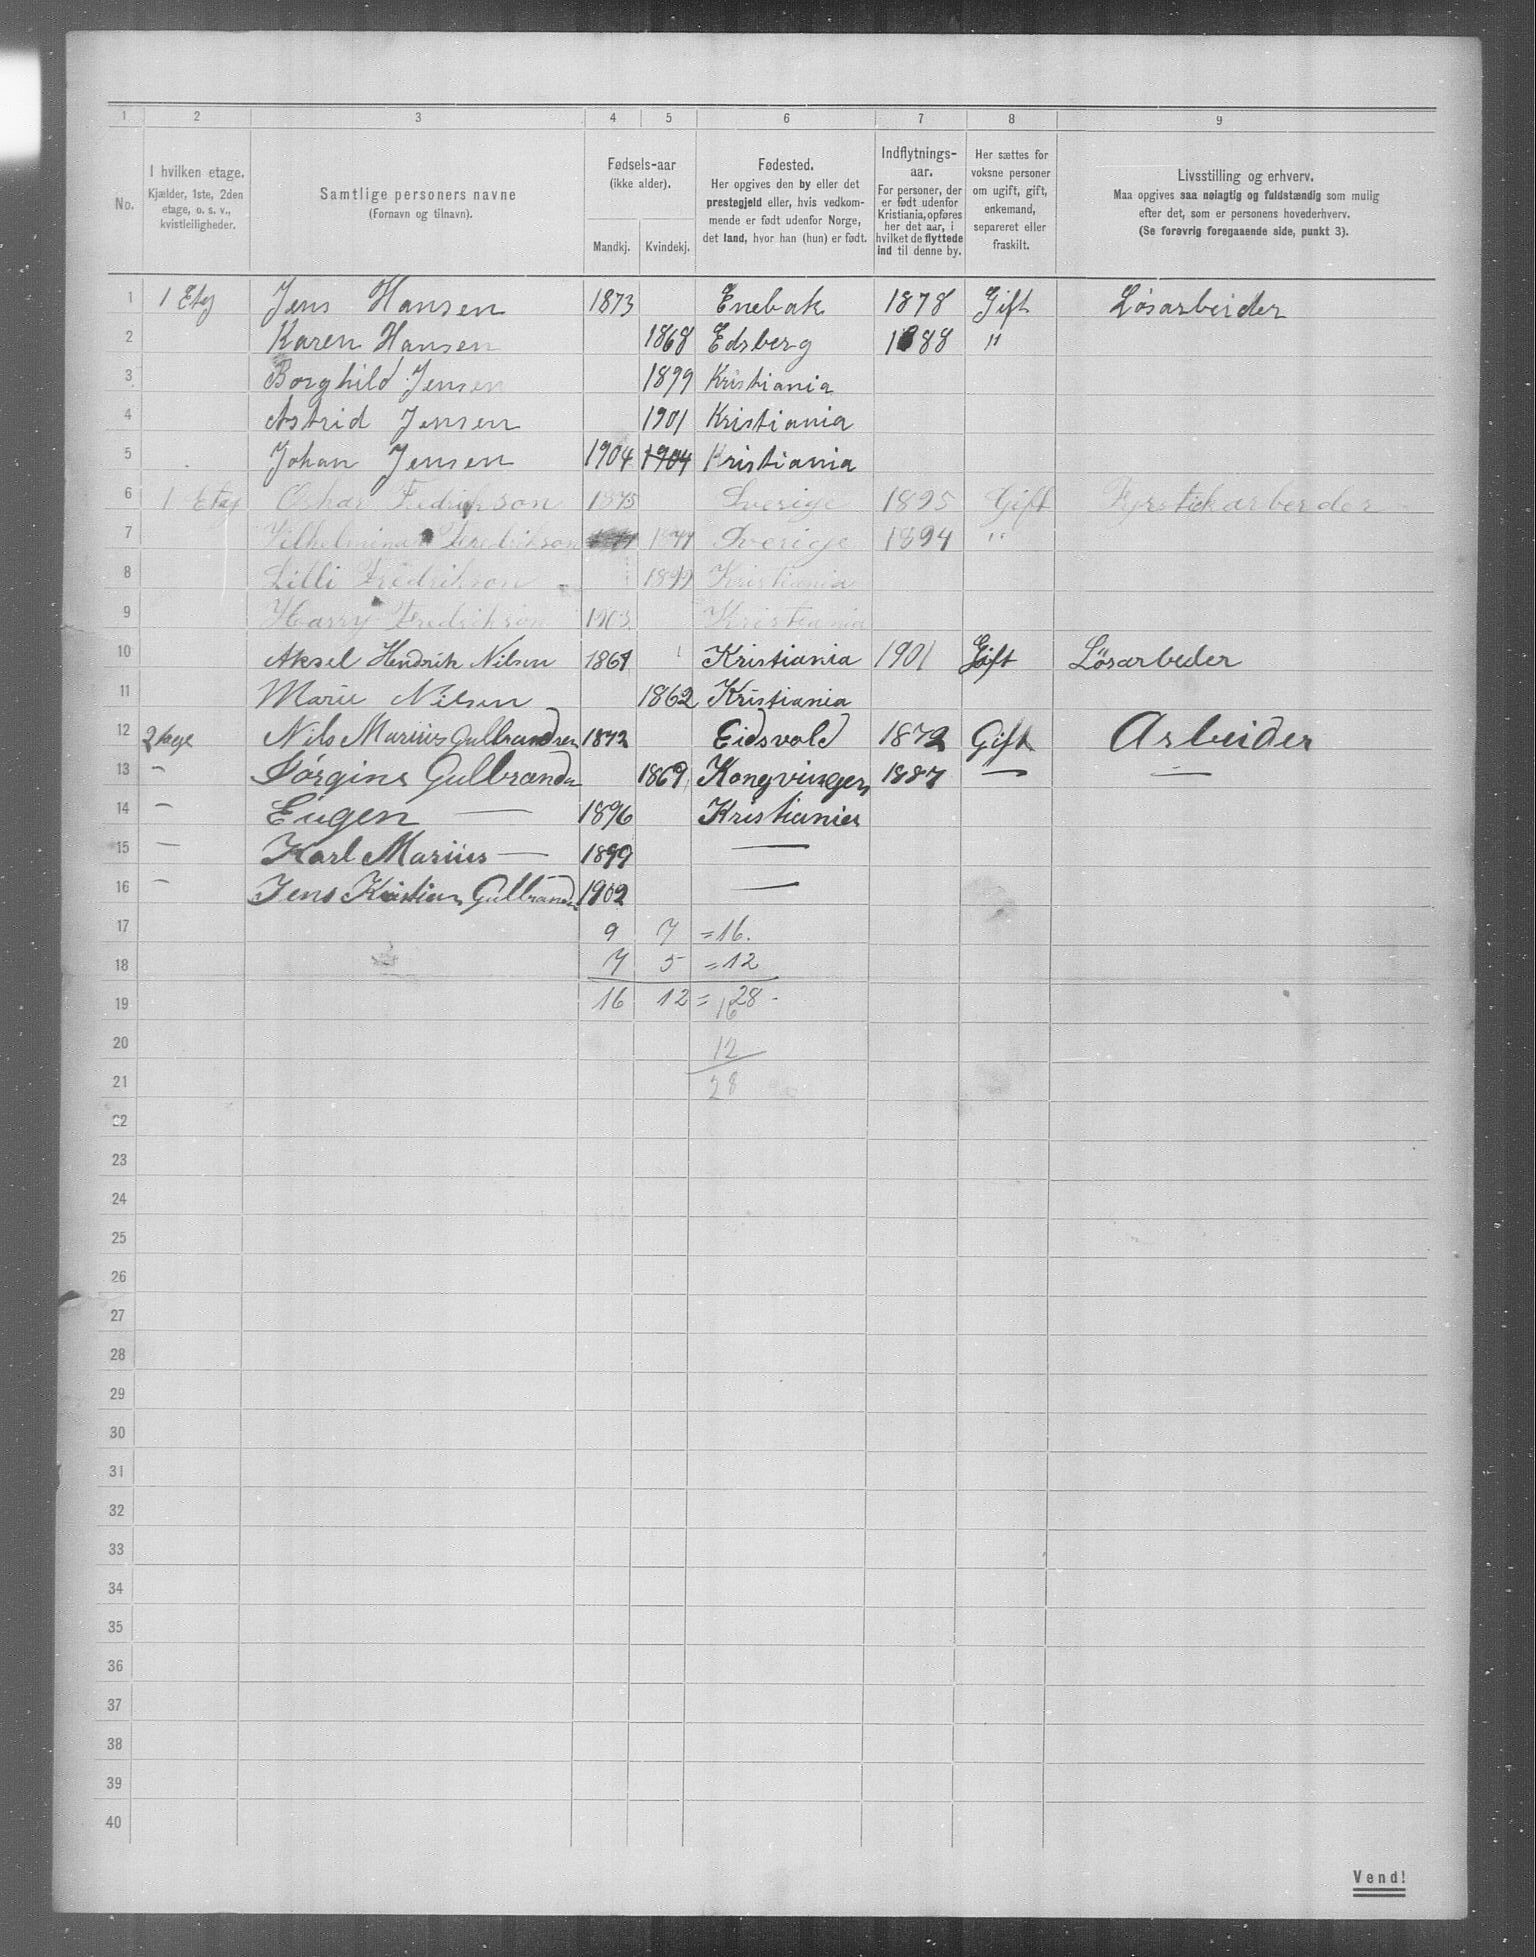 1 2 3 4 5 6 7 8 9
No.
I hvilken etage.
Kjælder, 1ste, 2den
etage, o. s. v.,
kvistleiligheder.
Samtlige personers navne
(Fornavn og tilnavn).
Fødsels-aar
(ikke alder).
Mandkj. Kvindekj.
Fødested.
Her opgives den by eller det
prestegjeld eller, hvis vedkom-
mende er født udenfor Norge,
det land, hvor han (hun) er født.
Indflytnings-
aar.
For personer, der
er født udenfor
Kristiania, opføres
her det aar, i
hvilket de flyttede
ind til denne by.
Her sættes for
voksne personer
om ugift, gift,
enkemand,
separeret eller
fraskilt.
Livsstilling og erhverv.
Maa opgives saa nøiagtig og fuldstændig som mulig
efter det, som er personens hovederhverv.
(Se forøvrig foregaaende side, punkt 3).
1 1 Etg Jens Hansen 1873 Enebak 1878 Gift Løsarbeider
2 Karen Hansen 1868 Edsberg 1888 "
3 Borghild Jensen 1899 Kristiania
4 Astrid Jensen 1901 Kristiania
5 Johan Jensen 1904 1904 Kristiania
6 1 Etag Oskar Fredrikson 1875 Sverige 1895 Gift
7 Vilhelmina Fredrikson Sverige 1894 "
8 Lilli Fredrikson 1899 Kristiania
9 Harry Fredrikson 1903 Kristiania
10 Aksel Hendrik Nilsen Kristiania 1901 Gift Løsarbeder
11 Marie Nilsen 1862 Kristiania
12 Nils Marius Gulbrandsen 1872 Eidsvold 1872 Gift Arbeider
13 - Jørgine Gulbrandsen 1869 Kongvinger 1887 — —
14 - Eugen — 1896 Kristiania
15 - Karl Marius — 1899 —
16 - Jens Kristian Gulbrandsen 1902 —
17 9 7 = 16.
18 7 5 = 12
19 16 12 = 28 -
16
20 12
21 28
22
23
24
25
26
27
28
29
30
31
32
33
34
35
36
37
38
39
40
Vend!